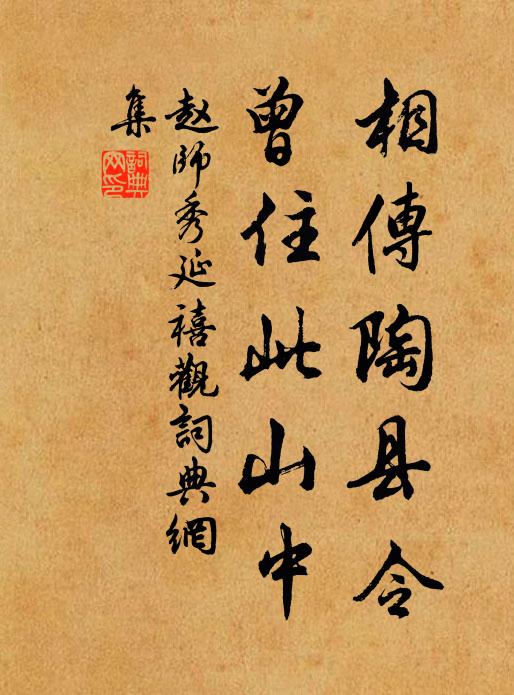 相傳陶县令
曾住此山中
赵師秀延禧觀詞典網
集
詞典網印